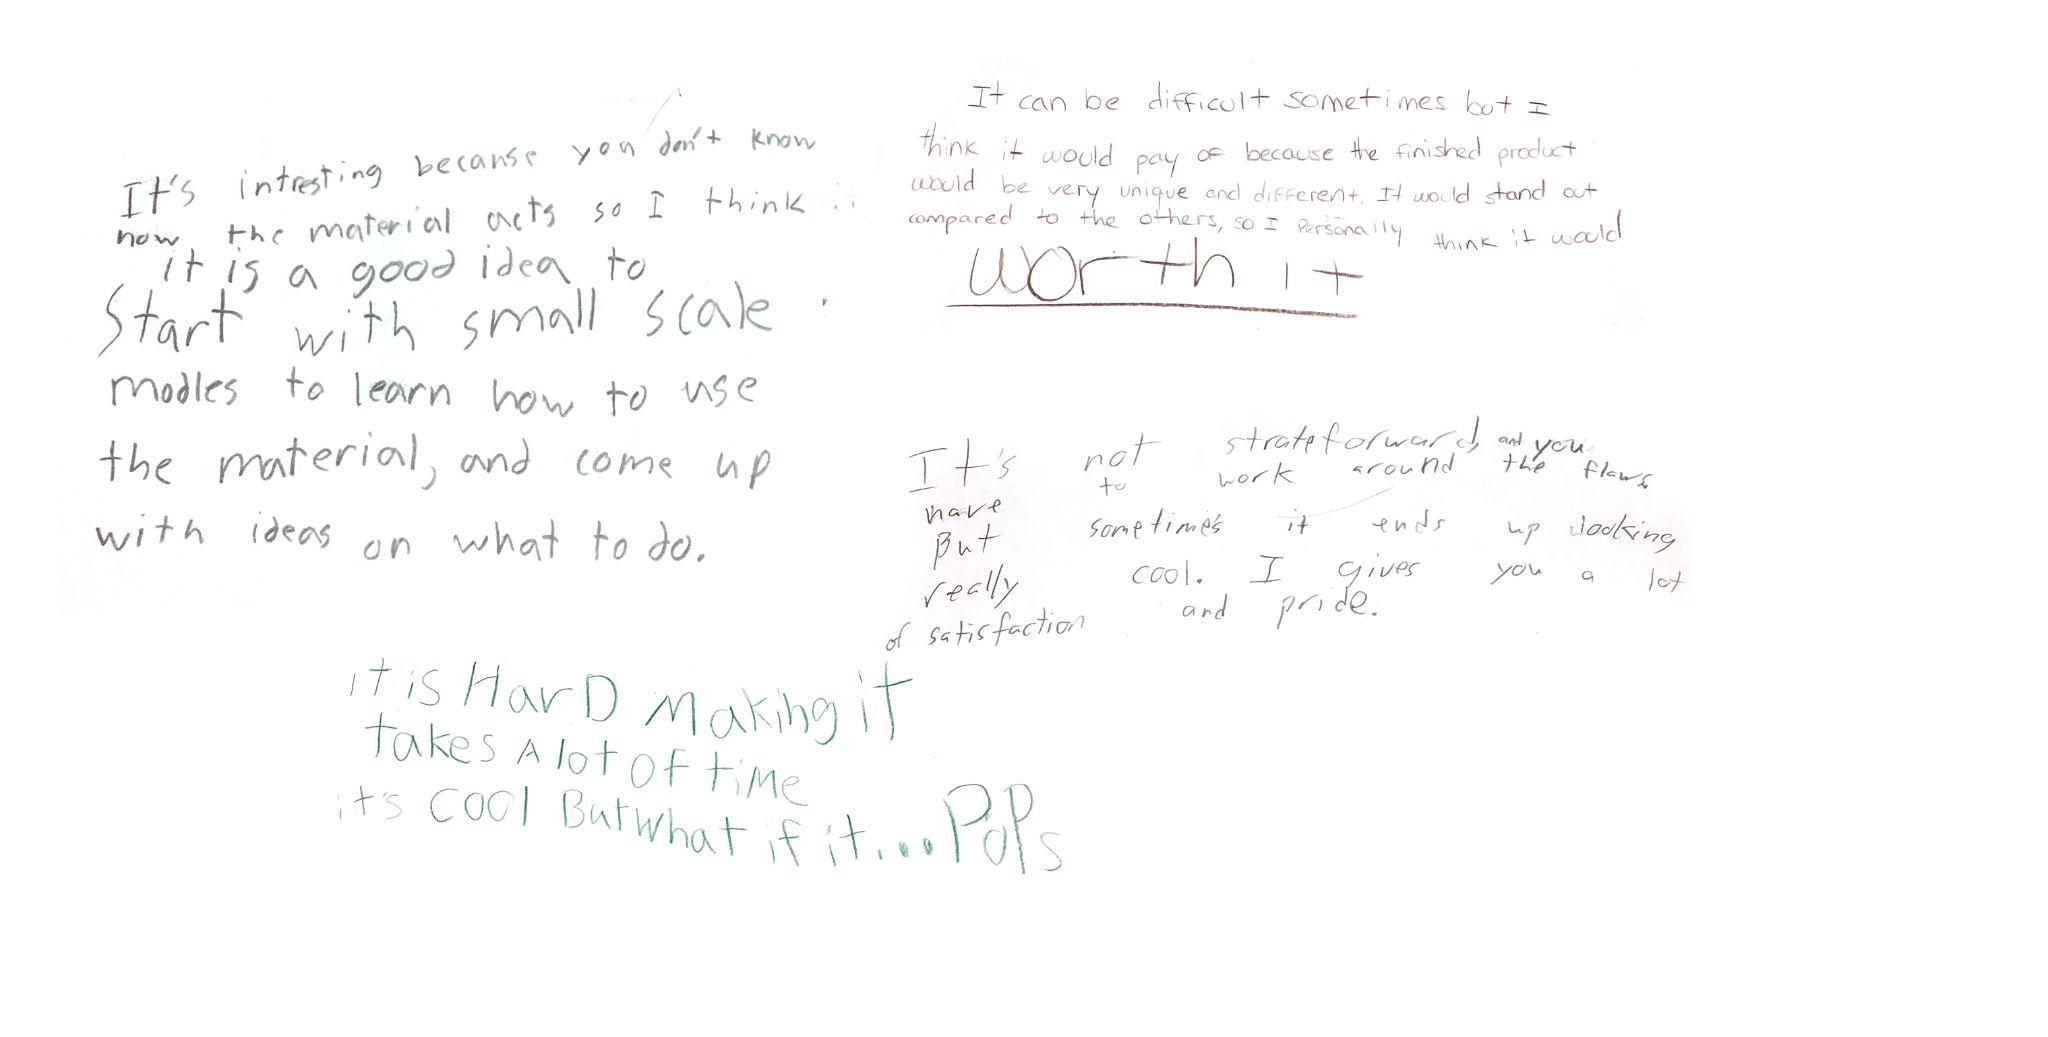 It's intresting because you don't know
how the material acts so I think
it is a good idea to
Start with small scale
modles to learn how to use
the material, and come up
with ideas on what to do.
It can be difficult sometimes but I
think it would pay of because the finished product
would be very unique and different. It would stand out
compared to the others, so I Personally think it would
worth it
It's not strateforward, and you
have to work around the flaws
But sometimes it ends up looking
really cool. I gives you a lot
of satisfaction and pride.
it is HarD Making it
takes A lot OF time
it's COOl But What if it.... PoPs